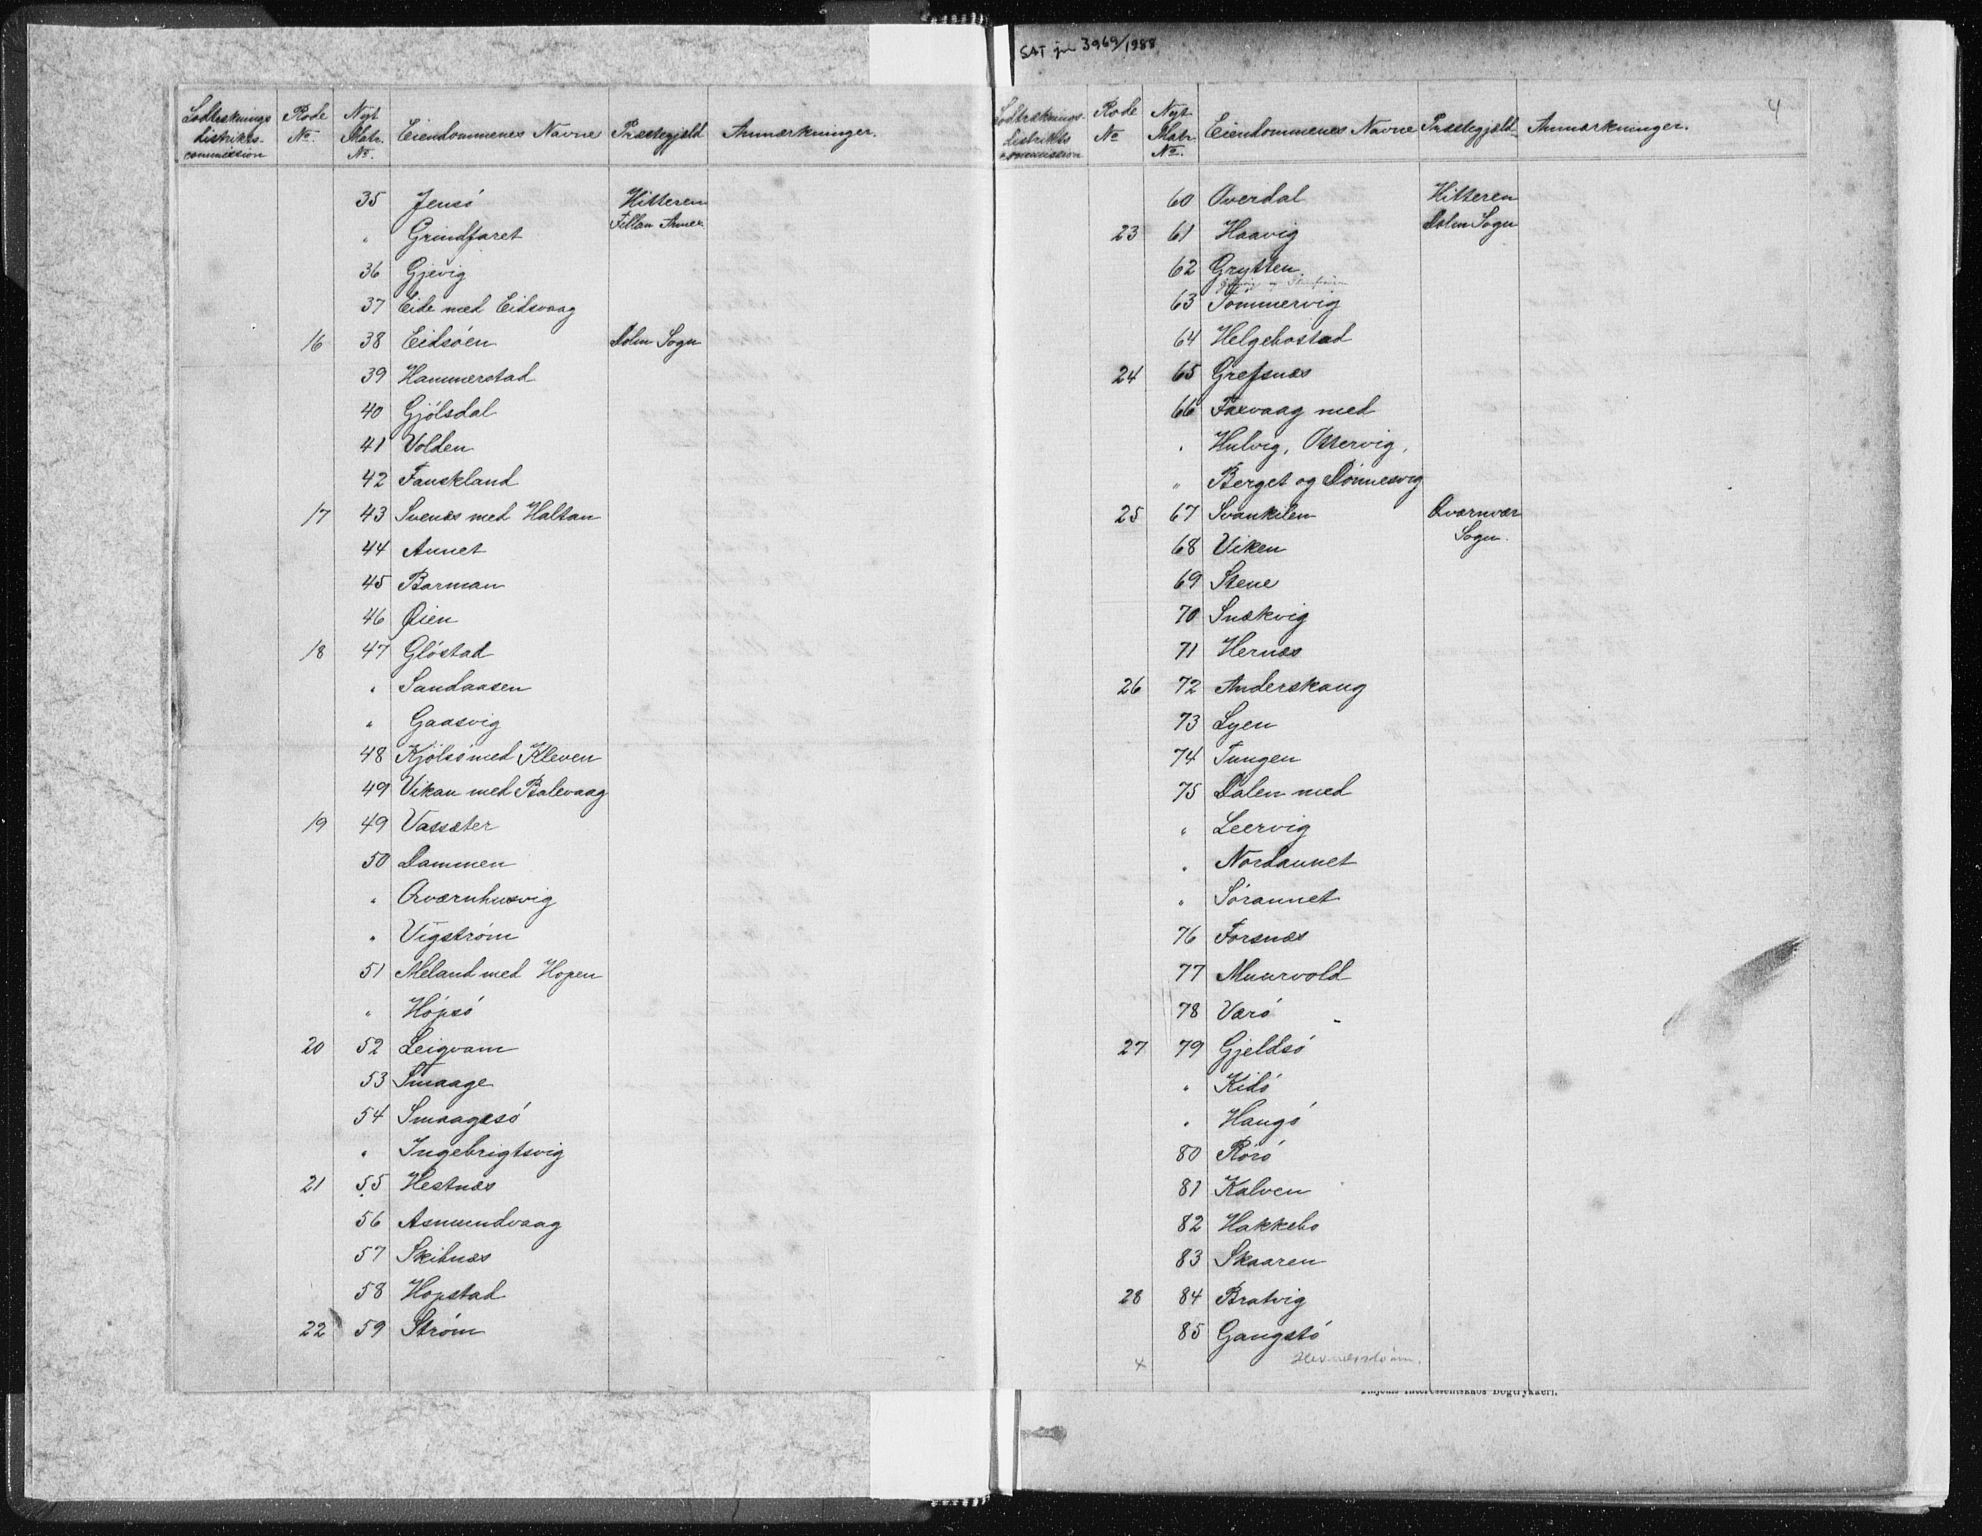 SAT jnr 3969/1988
Lodtræknings Rode Nyt
distrikts- No. Matr. Eiendommenes Navne Præstegjæld Anmærkninger.
commission No.
35 Jensö Hitteren
" Grindfaret Fillan Annex
36 Gjevig
37 Eide med Eidsvaag
16 38 Eidsöen Dolm Sogn
39 Hammerstad
40 Gjölsdal
41 Volden
42 Fauskland
17 43 Svenæs med Haltan
44 Aunet
45 Barman
46 Øien
18 47 Glöstad
" Sandaasen
" Gaasvig
48 Kjölsö med Kleven
49 Vikan med Balevaag
19 49 Vassæter
50 Dammen
" Qværnhusvig
" Vigström
51 Meland med Hopen
" Hopsö
20 52 Leigvam
53 Smaage
54 Smaagesö
" Ingebrigtsvig
21 55 Hestnæs
56 Asmundvaag
57 Skibnæs
58 Hopstad
22 59 Ström
4
Lodtræknings- Rode Nyt
distrikts No Matr. Eiendommenes Navne Præstegjæld Anmærkninger.
commission No.
60 Overdal Hitteren
23 61 Haavig Dolm Sogn
62 Grytten
63 Tömmervig
64 Helgebostad
24 65 Grefsnæs
66 Faxvaag med
" Hulvig, Ottervig,
" Berget og Dönnesvig
25 67 Svankilen Qværnvær
68 Viken Sogn.
69 Stene
70 Snækvig
71 Hernæs
26 72 Anderskaug
73 Lyen
74 Tungen
75 Dalen med
" Leervig
" Nordaunet
" Söraunet
76 Forsnæs
77 Muurvold
78 Værö
27 79 Gjeldsö
" Kidö
" Haugö
80 Rörö
81 Kalven
82 Hakkebo
83 Skaaren
28 84 Bratvig
85 Gangstö
x Hernæsström.
Thjems Interessentskabs Bogtrykkeri.